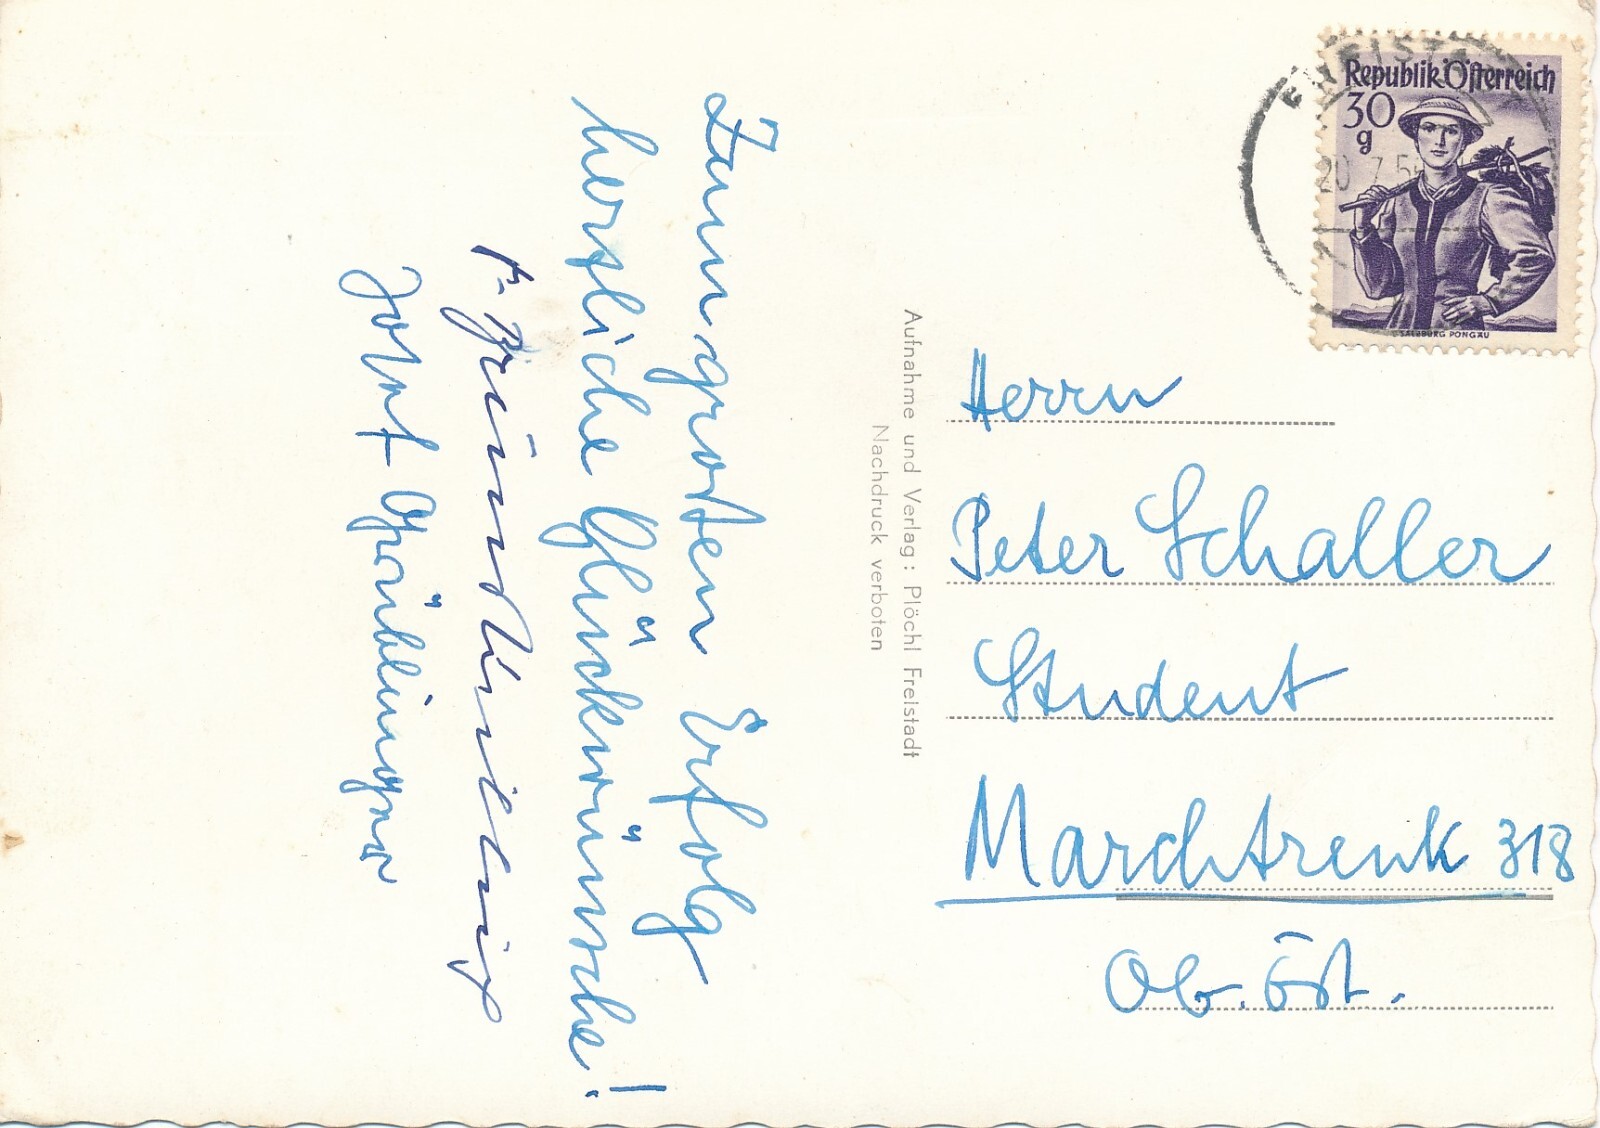 Zum großen Erfolg
herzliche Glückwünsche!
Josef
Aufnahme und Verlag: Plöchl Freistadt
Nachdruck verboten
Republik Österreich
30
g
20 7 5
SALZBURG PONGAU
Herrn
Peter Schaller
Student
Marchtrenk 318
Ob. Öst.